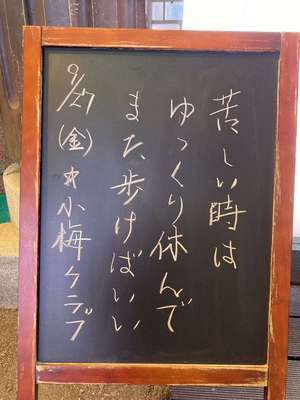 苦しい時は
ゆっくり休んで
また歩けばいい
9/27(金)＊小梅クラブ